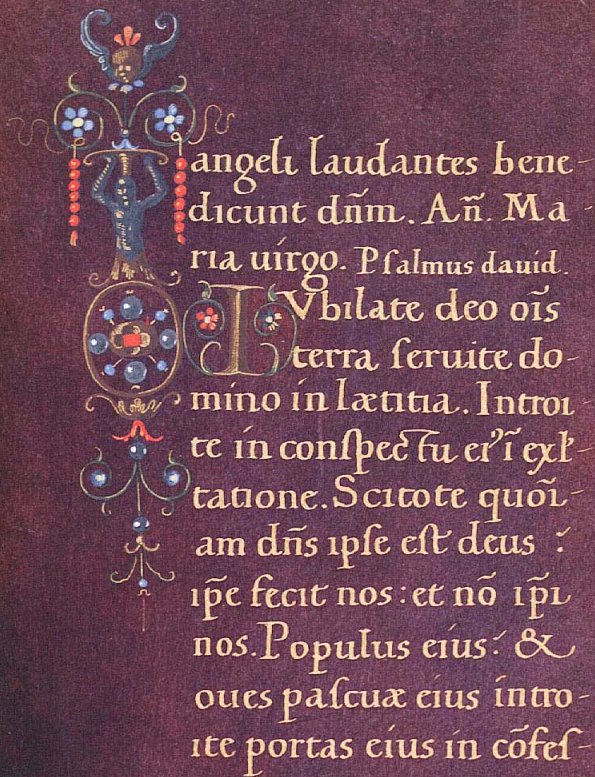 angeli laudantes bene-
dicunt dñm. Añ. Ma-
ria uirgo. Psalmus dauid.
IVbilate deo oı̃s
terra seruite do-
mino in lætitia. Introi-
te in conspectu ei'ı̃ exl-
tatione. Scitote quoı̃-
am dñs ipse est deus :
ip̃e fecit nos: et nõ ip̃i
nos. Populus eius: &
oues pascuæ eius intro-
ite portas eius in cõfes-